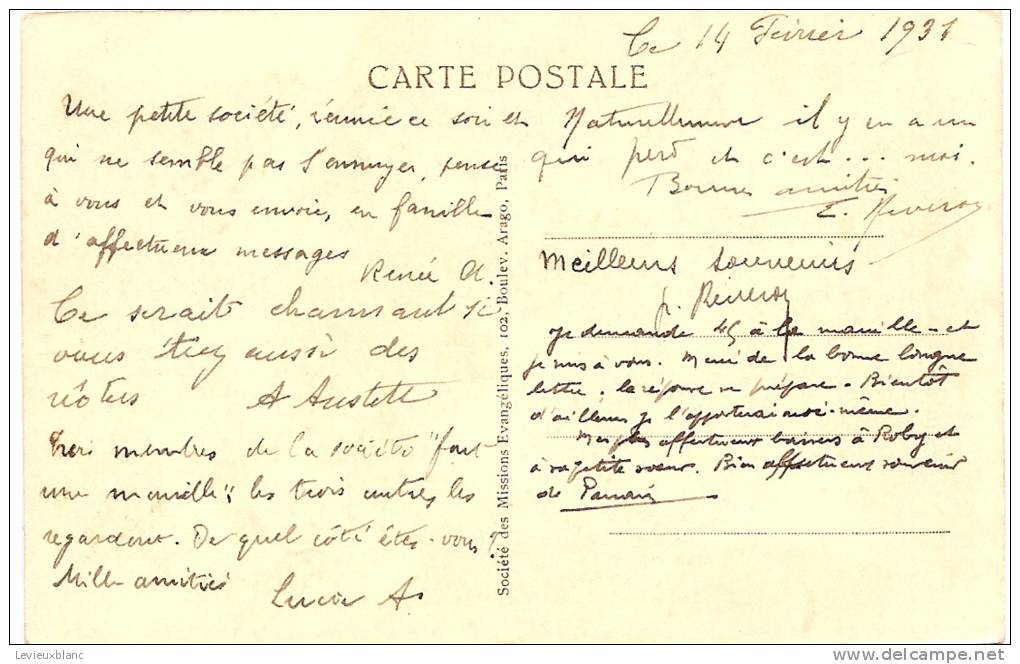 Ce 14 Février 1931
CARTE POSTALE
Une petite société, réunie ce soir et
qui ne semble pas s'ennuyer, pense
à vous et vous envoie, en famille
d'affectueux messages
Renée A.
Ce serait charmant si
vous étiez aussi des
nôtres A
Trois membres de la société "font
une manille", les trois autres les
regardent. De quel côté êtes-vous?
Mille amitiés
Lucie As
Société des Missions Evangéliques, 102, Boulev. Arago, Paris
Naturellement il y en a un
qui perd et c'est... moi.
Bonnes amitiés
E.
Meilleurs souvenirs
Je demande 45 à la manille - et
je suis à vous. Merci de la bonne longue
lettre, la réponse se prépare. Bientôt
d'ailleurs je l'apporterai moi-même.
Mes plus affectueux baisers à Roby et
à sa petite soeur. Bien affectueux souvenir
de
Levieuxblanc